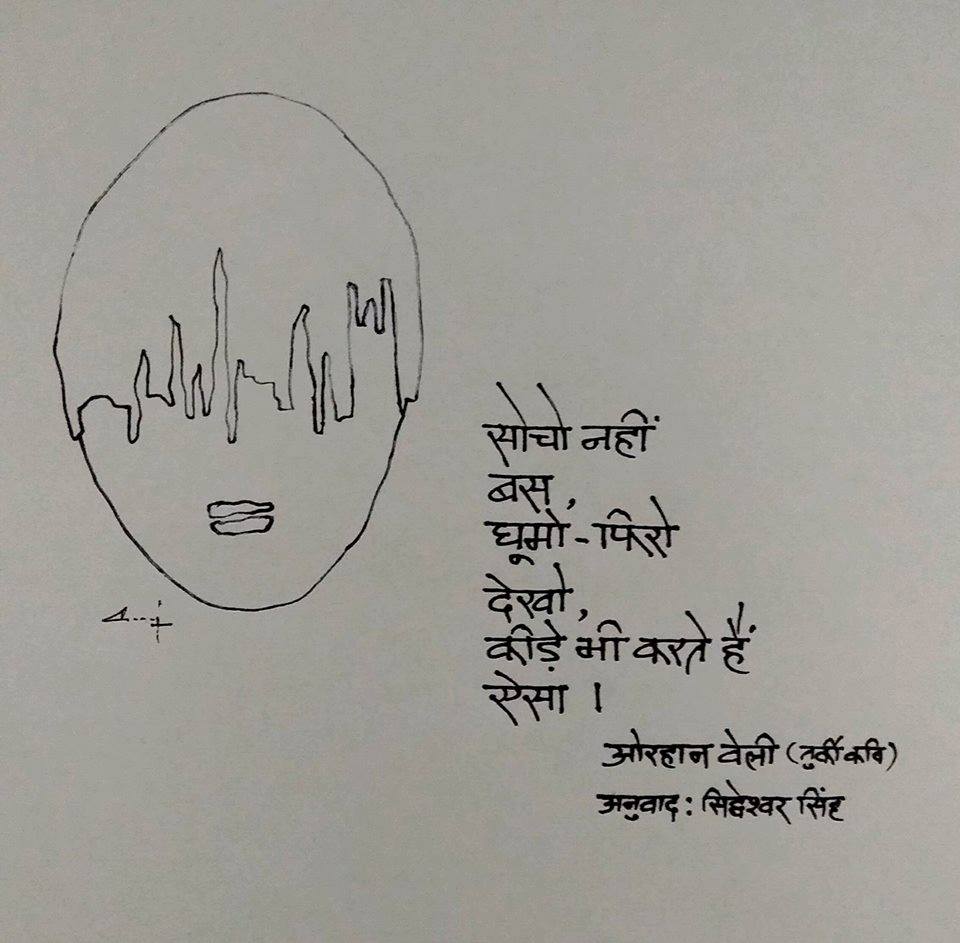 सोचो नहीं
बस,
घूमो-फिरो
देखो,
कीड़े भी करते हैं
ऐसा ।
ओरहान वेली (तुर्की कवि)
अनुवाद: सिद्धेश्वर सिंह